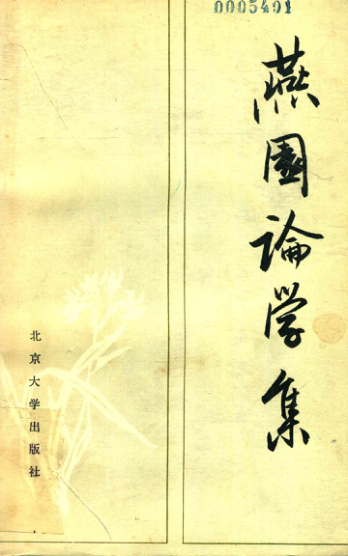 0005491
燕園論学集
北京大学出版社